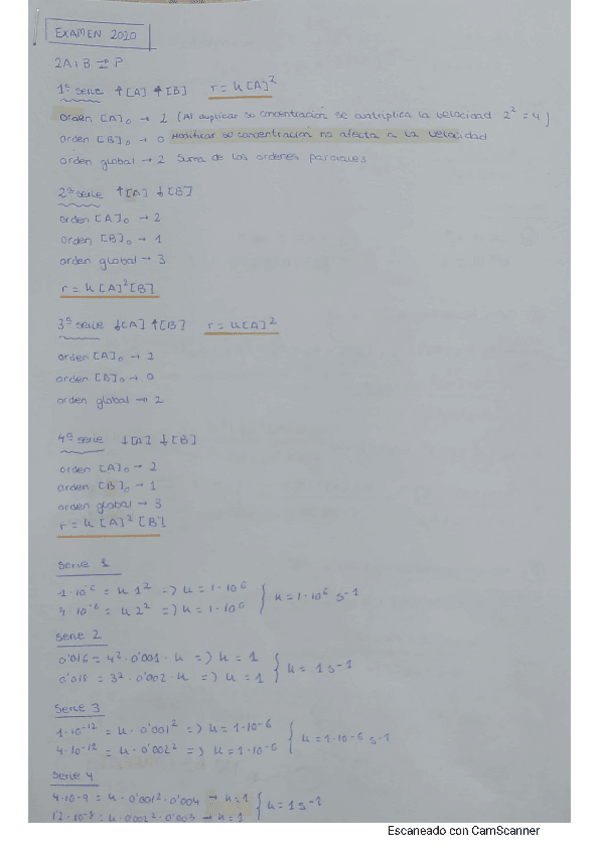 EXAMEN 2020
2A + B ⇄ P
1ª serie ↑[A] ↑[B] r = k[A]²
orden [A]₀ → 2 (Al duplicar su concentración se cuatriplica la velocidad 2² = 4)
orden [B]₀ → 0 Modificar su concentración no afecta a la velocidad
orden global → 2 Suma de los ordenes parciales
2ª serie ↑[A] ↓[B]
orden [A]₀ → 2
orden [B]₀ → 1
orden global → 3
r = k[A]²[B]
3ª serie ↓[A] ↑[B] r = k[A]²
orden [A]₀ → 2
orden [B]₀ → 0
orden global → 2
4ª serie ↓[A] ↓[B]
orden [A]₀ → 2
orden [B]₀ → 1
orden global → 3
r = k[A]²[B]
Serie 1
1·10⁻⁶ = k 1² => k = 1·10⁶
4·10⁻⁶ = k 2² => k = 1·10⁶ } k = 1·10⁶ s⁻¹
Serie 2
0'016 = 4²·0'001·k => k = 1
0'018 = 3²·0'002·k => k = 1 } k = 1 s⁻¹
Serie 3
1·10⁻¹² = k·0'001² => k = 1·10⁻⁶
4·10⁻¹² = k·0'002² => k = 1·10⁻⁶ } k = 1·10⁻⁶ s⁻¹
Serie 4
4·10⁻⁹ = k·0'001²·0'004 → k = 1
12·10⁻⁹ = k·0'002²·0'003 → k = 1 } k = 1 s⁻¹
Escaneado con CamScanner